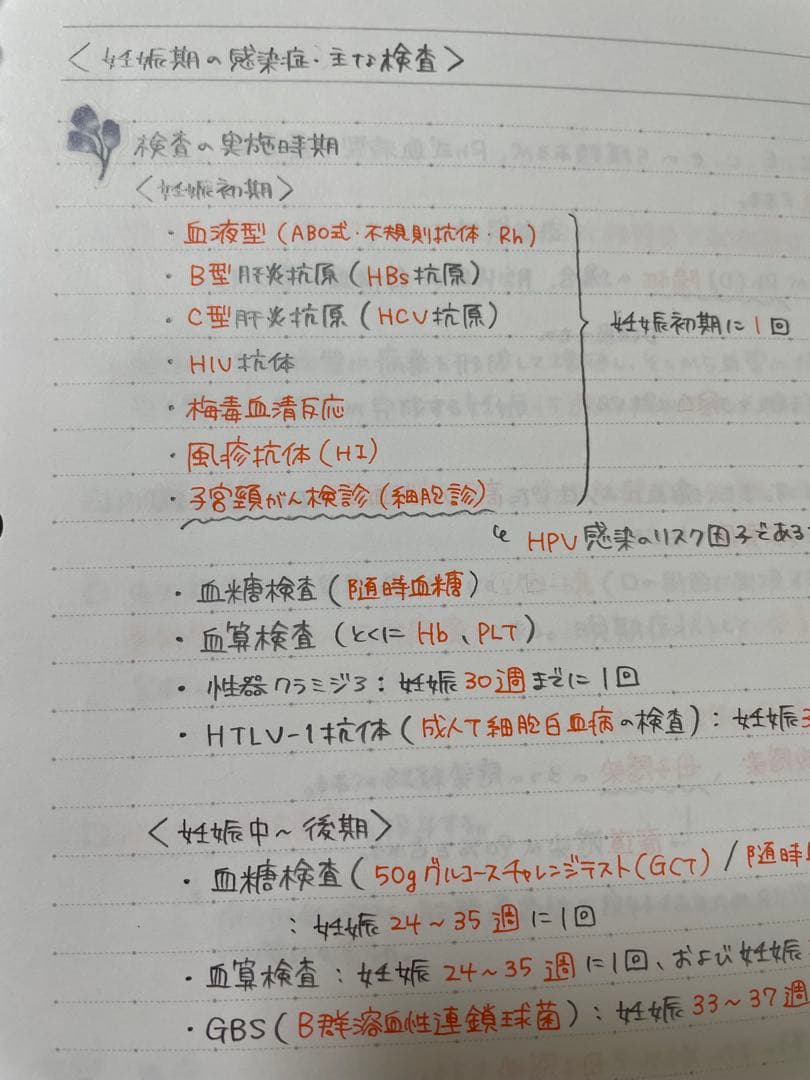 <妊娠期の感染症・主な検査>
検査の実施時期
<妊娠初期>
・血液型(ABO式・不規則抗体・Rh)
・B型肝炎抗原(HBs抗原)
・C型肝炎抗原(HCV抗原)
妊娠初期に1回
・HIV抗体
・梅毒血清反応
・風疹抗体(HI)
・子宮頸がん検診(細胞診)
↳ HPV感染のリスク因子である
・血糖検査(随時血糖)
・血算検査(とくにHb、PLT)
・性器クラミジア:妊娠30週までに1回
・HTLV-1抗体(成人T細胞白血病の検査):妊娠3
<妊娠中~後期>
・血糖検査(50gグルコースチャレンジテスト(GCT)/随時
:妊娠24~35週に1回
・血算検査:妊娠24~35週に1回、および妊娠
・GBS(B群溶血性連鎖球菌):妊娠33~37週